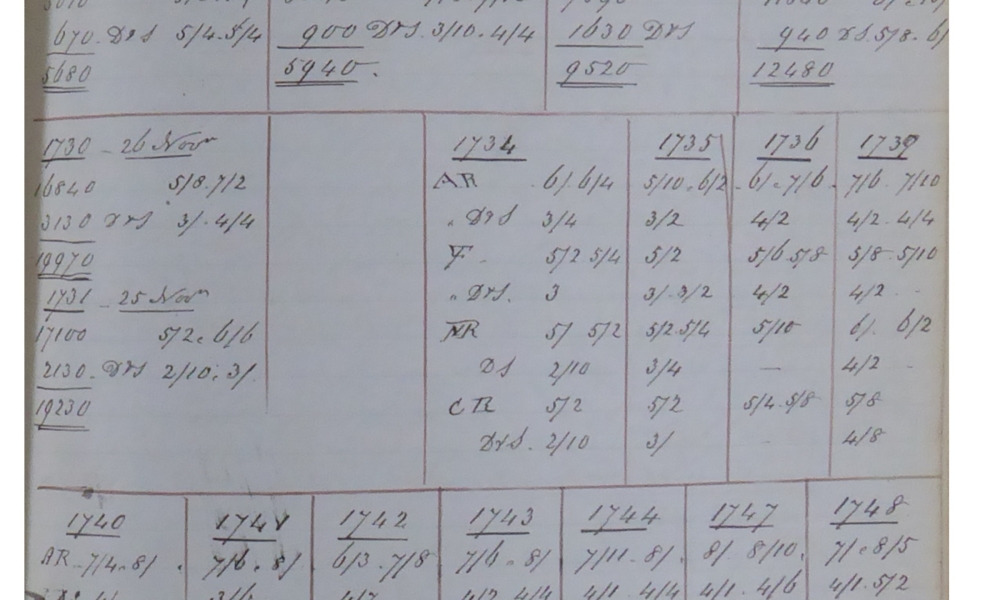 670. Drs 5/4. 5/4
900 Drs. 3/10. 4/4
1630 Drs
940 Ds. 5/8. 6/
5680
5940.
9520
12480
1730 - 26 Novr
16840 5/8. 7/2
3130 Drs 3/. 4/4
19970
1731 - 25 Novr
17100 5/2. 6/6
2130. Drs 2/10. 3/.
19230
1734 1735 1736 1739
AR 6/. 6/4 5/10. 6/2. 6/. 7/6. 7/6 7/10
" Drs 3/4 3/2 4/2 4/2. 4/4
F. 5/2 5/4 5/2 5/6 5/8 5/8 5/10
" Drs. 3 3/. 3/2 4/2 4/2
NR 5/ 5/2 5/2. 5/4 5/10 6/. 6/2
Ds 2/10 3/4 — 4/2
CR 5/2 5/2 5/4. 5/8 5/8
Drs. 2/10 3/ 4/8
1740 1741 1742 1743 1744 1747 1748
AR. 7/4. 8/. 7/6. 8/ 6/3. 7/8 7/6. 8/ 7/11. 8/. 8/. 8/10. 7/. 8/5
3/6 4/2 4/4 4/1. 4/4 4/1. 4/6 4/1. 5/2